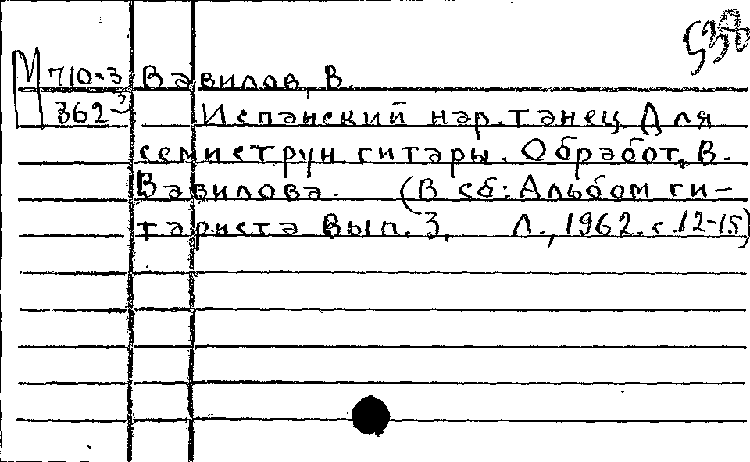 538
М 710-3 Вавилов, В.
362-3 Испанский нар. танец Для
семиструн гитары. Обработ. В.
Вавилова. (В сб: Альбом ги-
тариста Вып. 3. Л., 1962. с. 12-15)